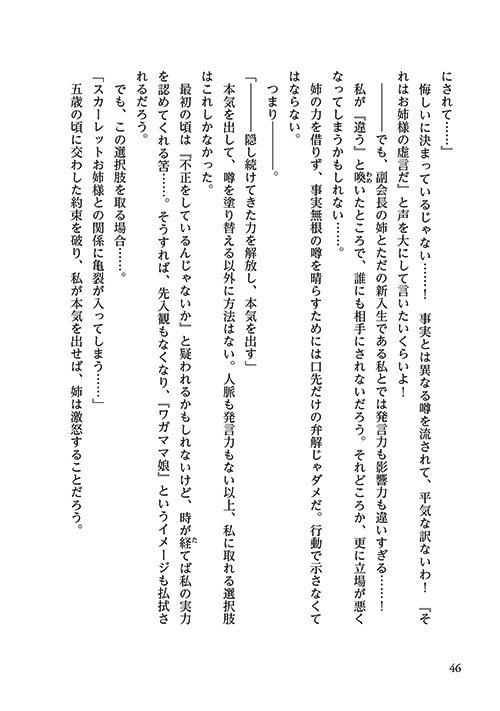 にされて……」
　悔しいに決まっているじゃない……！　事実とは異なる噂を流されて、平気な訳ないわ！　『そ
れはお姉様の虚言だ』と声を大にして言いたいくらいよ！
　――――でも、副会長の姉とただの新入生である私とでは発言力も影響力も違いすぎる……！
　私が『違う』と喚いたところで、誰にも相手にされないだろう。それどころか、更に立場が悪く
なってしまうかもしれない……。
　姉の力を借りず、事実無根の噂を晴らすためには口先だけの弁解じゃダメだ。行動で示さなくて
はならない。
　つまり――――。
「――――隠し続けてきた力を解放し、本気を出す」
　本気を出して、噂を塗り替える以外に方法はない。人脈も発言力もない以上、私に取れる選択肢
はこれしかなかった。
　最初の頃は『不正をしているんじゃないか』と疑われるかもしれないけど、時が経てば私の実力
を認めてくれる筈……。そうすれば、先入観もなくなり、『ワガママ娘』というイメージも払拭さ
れるだろう。
　でも、この選択肢を取る場合……。
「スカーレットお姉様との関係に亀裂が入ってしまう……」
　五歳の頃に交わした約束を破り、私が本気を出せば、姉は激怒することだろう。
わめ
た
46